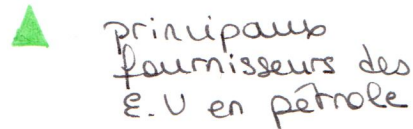 principaux
fournisseurs des
E.U en pétrole